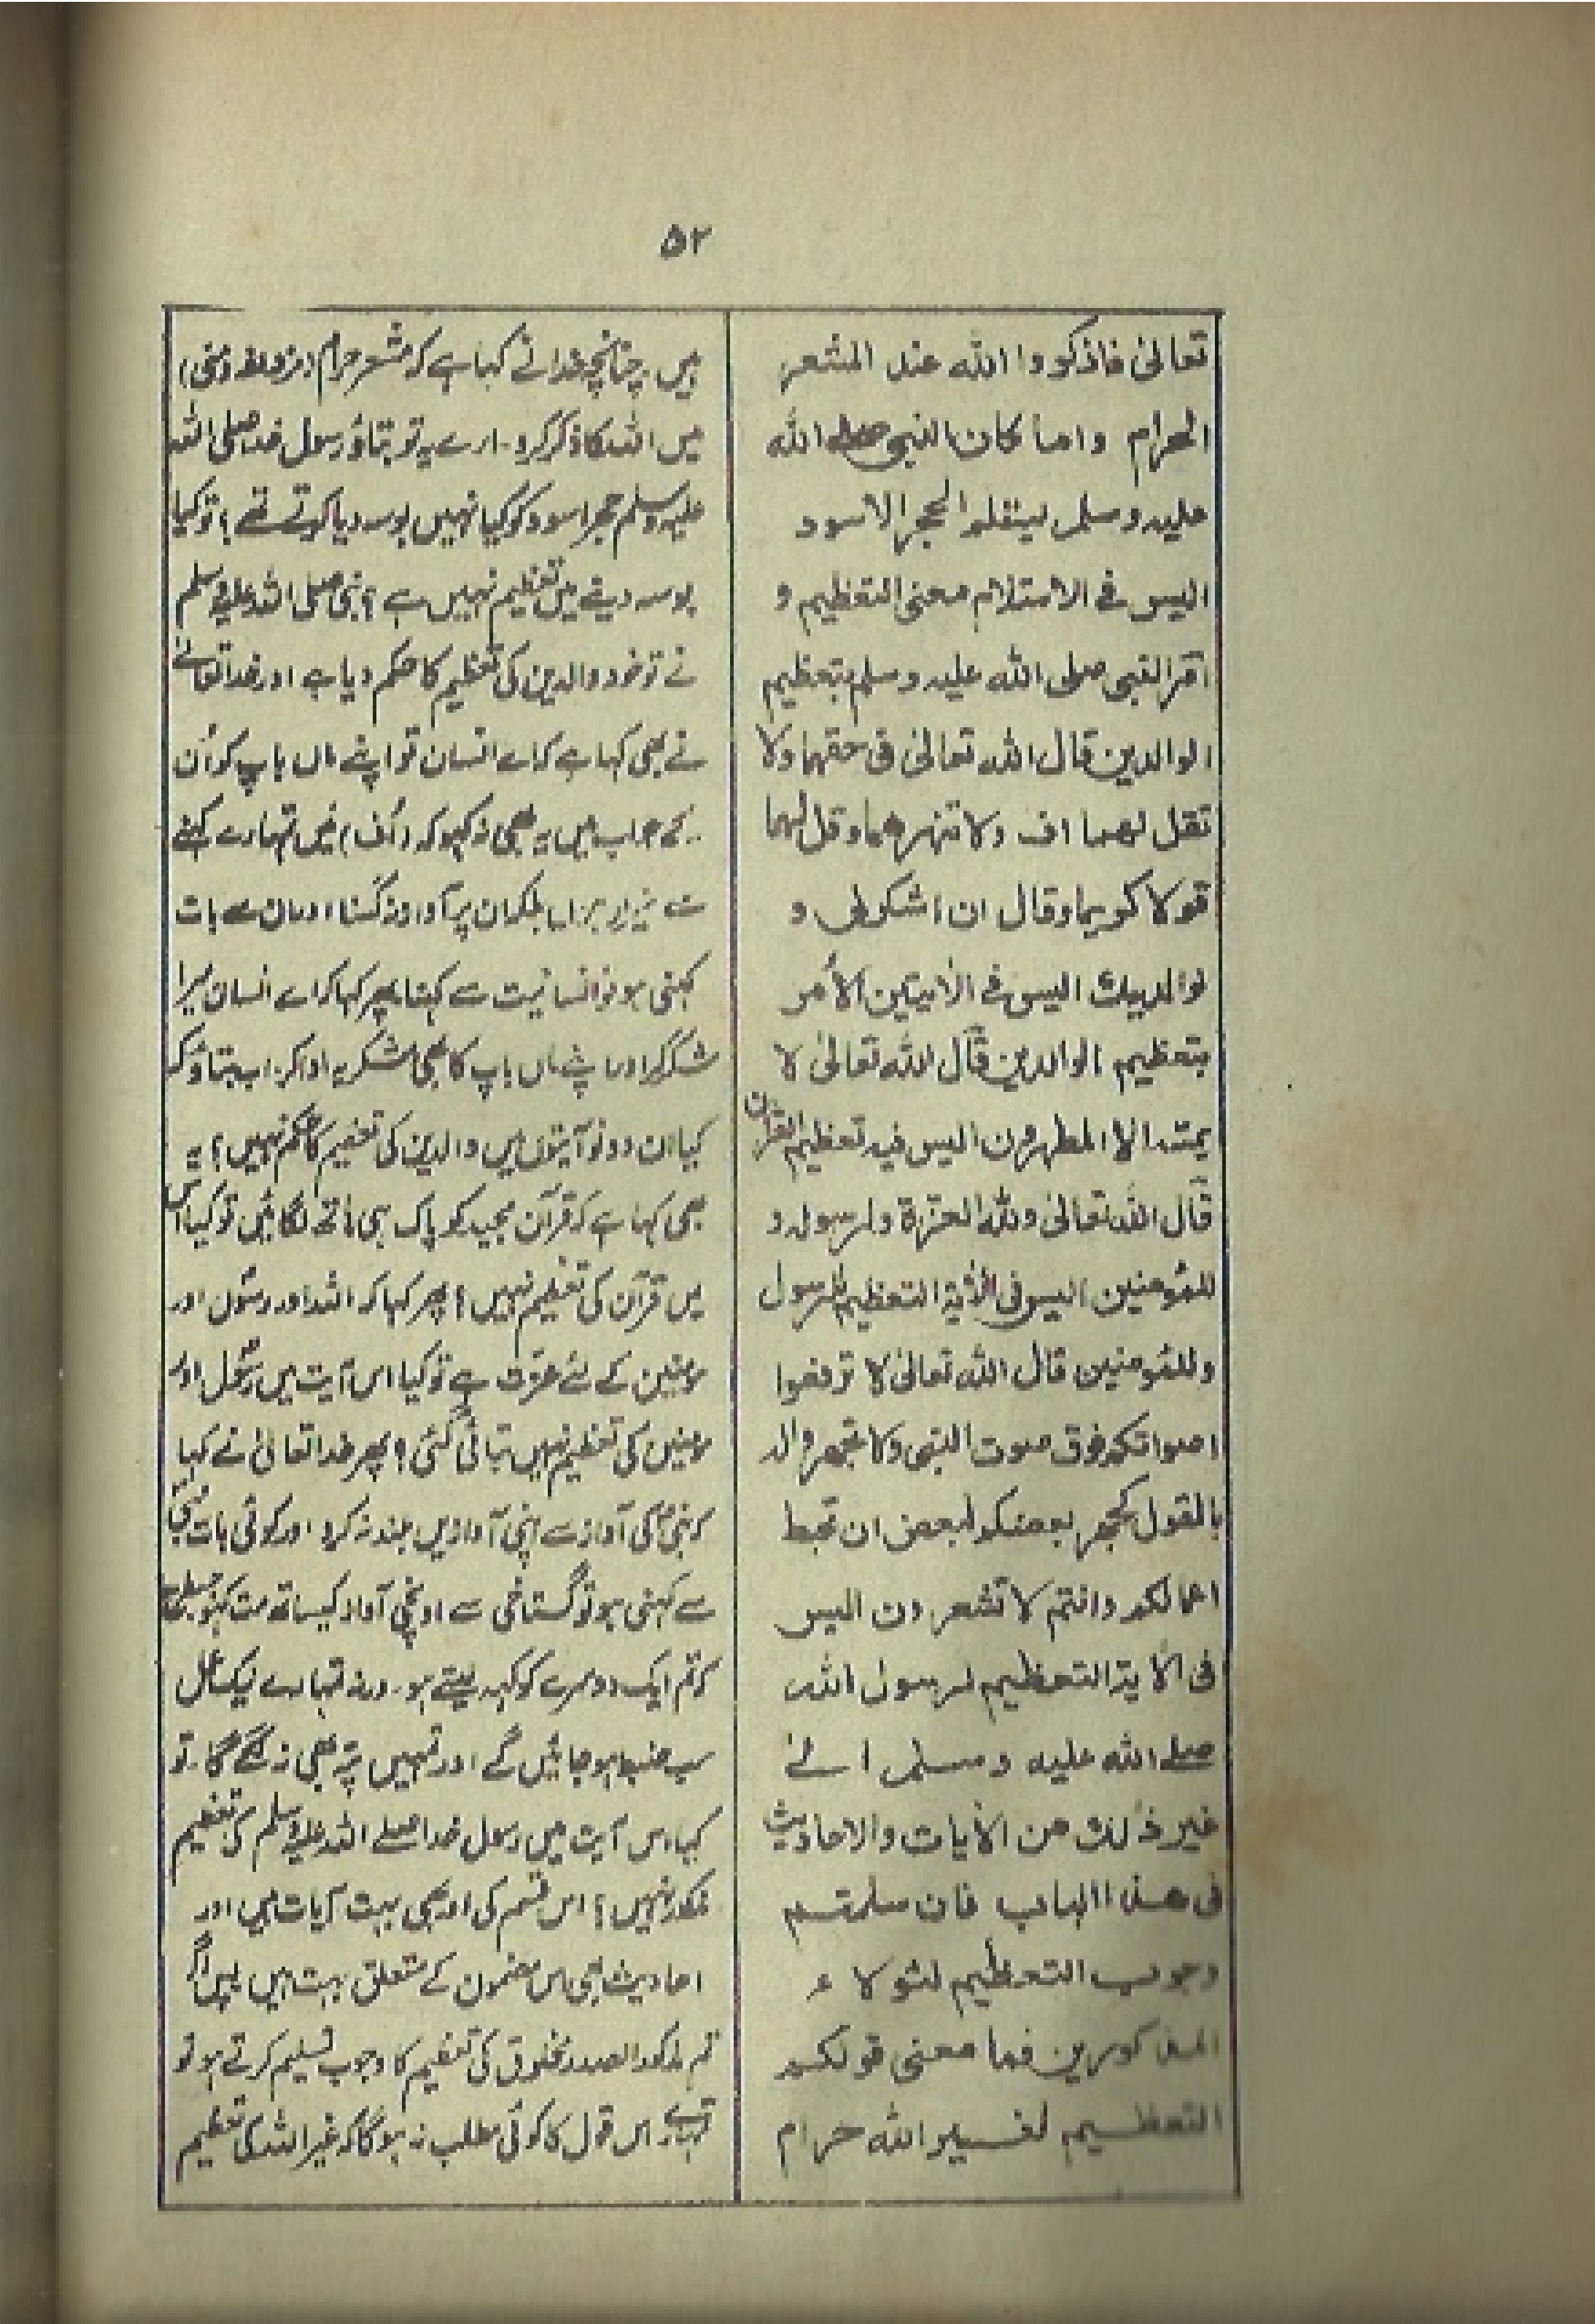 ۵۲
تعالیٰ فاذکروا الله عند المشعر
الحرام واما کان النبی صلے الله
علیه وسلم یستلم الحجر الاسود
الیس فے الاستلام معنی التعظیم و
اقر النبی صلی الله علیه وسلم بتعظیم
الوالدین قال الله تعالیٰ فی حقهما ولا
تقل لهما اف ولا تنهرهما وقل لهما
قولا کریما وقال ان اشکرلی و
لوالدیک الیس فے الاٰیتین الامر
بتعظیم الوالدین قال الله تعالیٰ لا
یمسه الا المطهرون الیس فیه تعظیم القرآن
قال الله تعالیٰ ولله العزة ولرسوله و
للمؤمنین الیس فی الاٰیة التعظیم للرسول
وللمؤمنین قال الله تعالیٰ لا ترفعوا
اصواتکم فوق صوت النبی ولا تجهروا له
بالقول کجهر بعضکم لبعض ان تحبط
اعمالکم وانتم لا تشعرون الیس
فی الاٰیة التعظیم لرسول الله
صلے الله علیه وسلم الےٰ
غیر ذٰلک من الاٰیات والاحادیث
فی هذا الباب فان سلمتم
وجوب التعظیم لهٰؤلاء
المذکورین فما معنی قولکم
التعظیم لغیر الله حرام
ہیں چنانچہ خدا نے کہا ہے کہ مشعر حرام (مزدلفہ ومنی)
میں اللہ کا ذکر کرو۔ ارے یہ تو بتاؤ رسول خدا صلی اللہ
علیہ وسلم حجر اسود کو کیا نہیں بوسہ دیا کرتے تھے؟ تو کیا
بوسہ دینے میں تعظیم نہیں ہے؟ نبی صلی اللہ علیہ وسلم
نے تو خود والدین کی تعظیم کا حکم دیا ہے اور خدا تعالےٰ
نے بھی کہا ہے کہ اے انسان تو اپنے ماں باپ کو اُن
کے جواب میں یہ بھی نہ کہو کہ (اُف) میں تمہارے کہنے
سے بیزار ہوں بلکہ ان پر آوازہ نہ کسنا اور ان سے بات
کہنی ہو تو انسانیت سے کہنا پھر کہا کہ اے انسان میرا
شکر کر اور اپنے ماں باپ کا بھی شکریہ ادا کر۔ اب بتاؤ کہ
کیا ان دونو آیتوں میں والدین کی تعظیم کا حکم نہیں؟ یہ
بھی کہا ہے کہ قرآن مجید کو پاک ہی ہاتھ لگائیں تو کیا اس
میں قرآن کی تعظیم نہیں؟ پھر کہا کہ اللہ اور رسول اور
مومنین کے لئے عزّت ہے تو کیا اس آیت میں رسول اور
مومنین کی تعظیم نہیں بتائی گئی؟ پھر خدا تعالیٰ نے کہا
کہ نبی کی آواز سے اپنی آوازیں بلند نہ کرو اور کوئی بات نبی
سے کہنی ہو تو گستاخی سے اونچی آواز کیساتھ مت کہو جسطرح
کہ تم ایک دوسرے کو کہہ لیتے ہو۔ ورنہ تمہارے نیک عمل
سب ضبط ہو جائیں گے اور تمہیں پتہ بھی نہ لگے گا۔ تو
کیا اس آیت میں رسول خدا صلے اللہ علیہ وسلم کی تعظیم
مذکور نہیں؟ اس قسم کی اور بھی بہت آیات ہیں اور
احادیث بھی اس مضمون کے متعلق بہت ہیں پس اگر
تم مذکور الصدر مخلوق کی تعظیم کا وجوب تسلیم کرتے ہو تو
تمہارے اس قول کا کوئی مطلب نہ ہوگا کہ غیر اللہ کی تعظیم